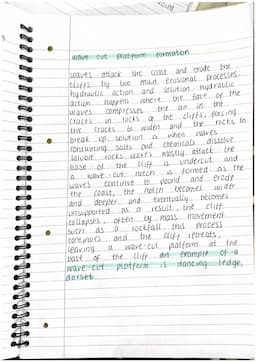 wave cut platform formation
waves attack the coast and erode the
cliffs by two main erosional processes.
hydraulic action and solution. Hydraulic
action happens where the force of the
waves compresses the air in the
cracks in rocks of the cliffs, forcing
the cracks to widen and the rocks to
break up. solution is when waves
containing salts and chemicals dissolve
soluble rocks. waves mostly attack the
base of the cliff is undercut and
a wave-cut notch is formed as the
waves continue to pound and erode
the coast, the notch becomes wider
and deeper and eventually becomes
unsupported as a result, the cliff
collapses, often by mass movement
such as a rockfall this process
continues and the cliff retreats,
leaving a wave-cut platform at the
base of the cliff an example of a
wave cut platform is dancing ledge,
dorset